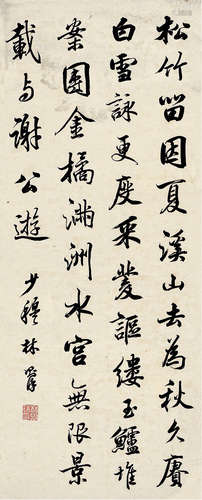 松竹留因夏溪山去為秋久賡
白雪詠更度采菱謳縷玉鱸堆
案團金橘滿洲水宮無限景
載与謝公遊 少穆林則徐